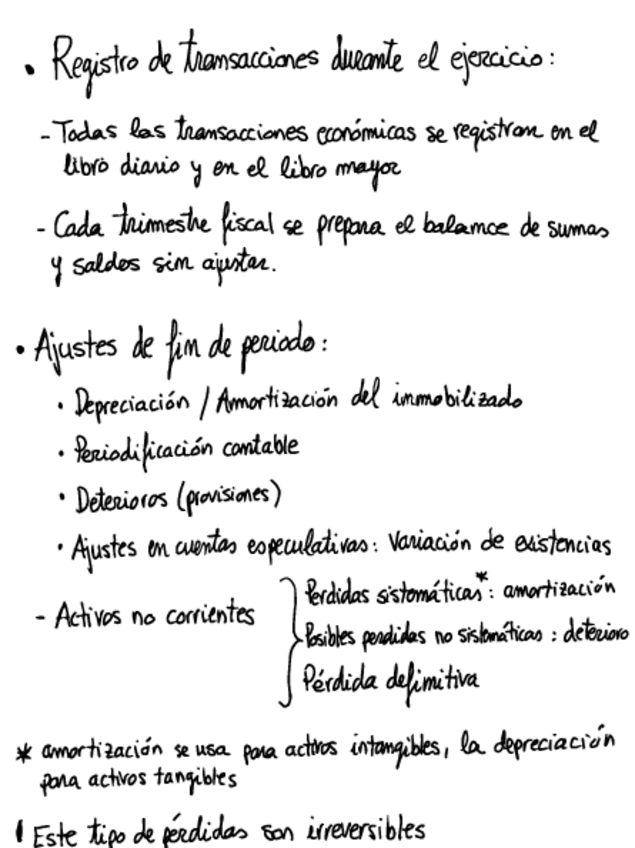 • Registro de transacciones durante el ejercicio:
- Todas las transacciones económicas se registran en el
libro diario y en el libro mayor
- Cada trimestre fiscal se prepara el balance de sumas
y saldos sin ajustar.
• Ajustes de fin de periodo:
• Depreciación / Amortización del inmobilizado
• Periodificación contable
• Deterioros (provisiones)
• Ajustes en cuentas especulativas: Variación de existencias
- Activos no corrientes
Perdidas sistemáticas*: amortización
Posibles perdidas no sistemáticas: deterioro
Pérdida definitiva
* amortización se usa para activos intangibles, la depreciación
para activos tangibles
! Este tipo de pérdidas son irreversibles